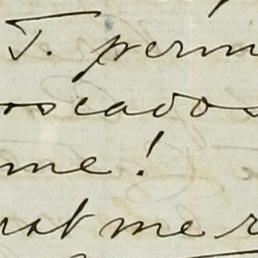 T. perm
oscados
me!
rat me r